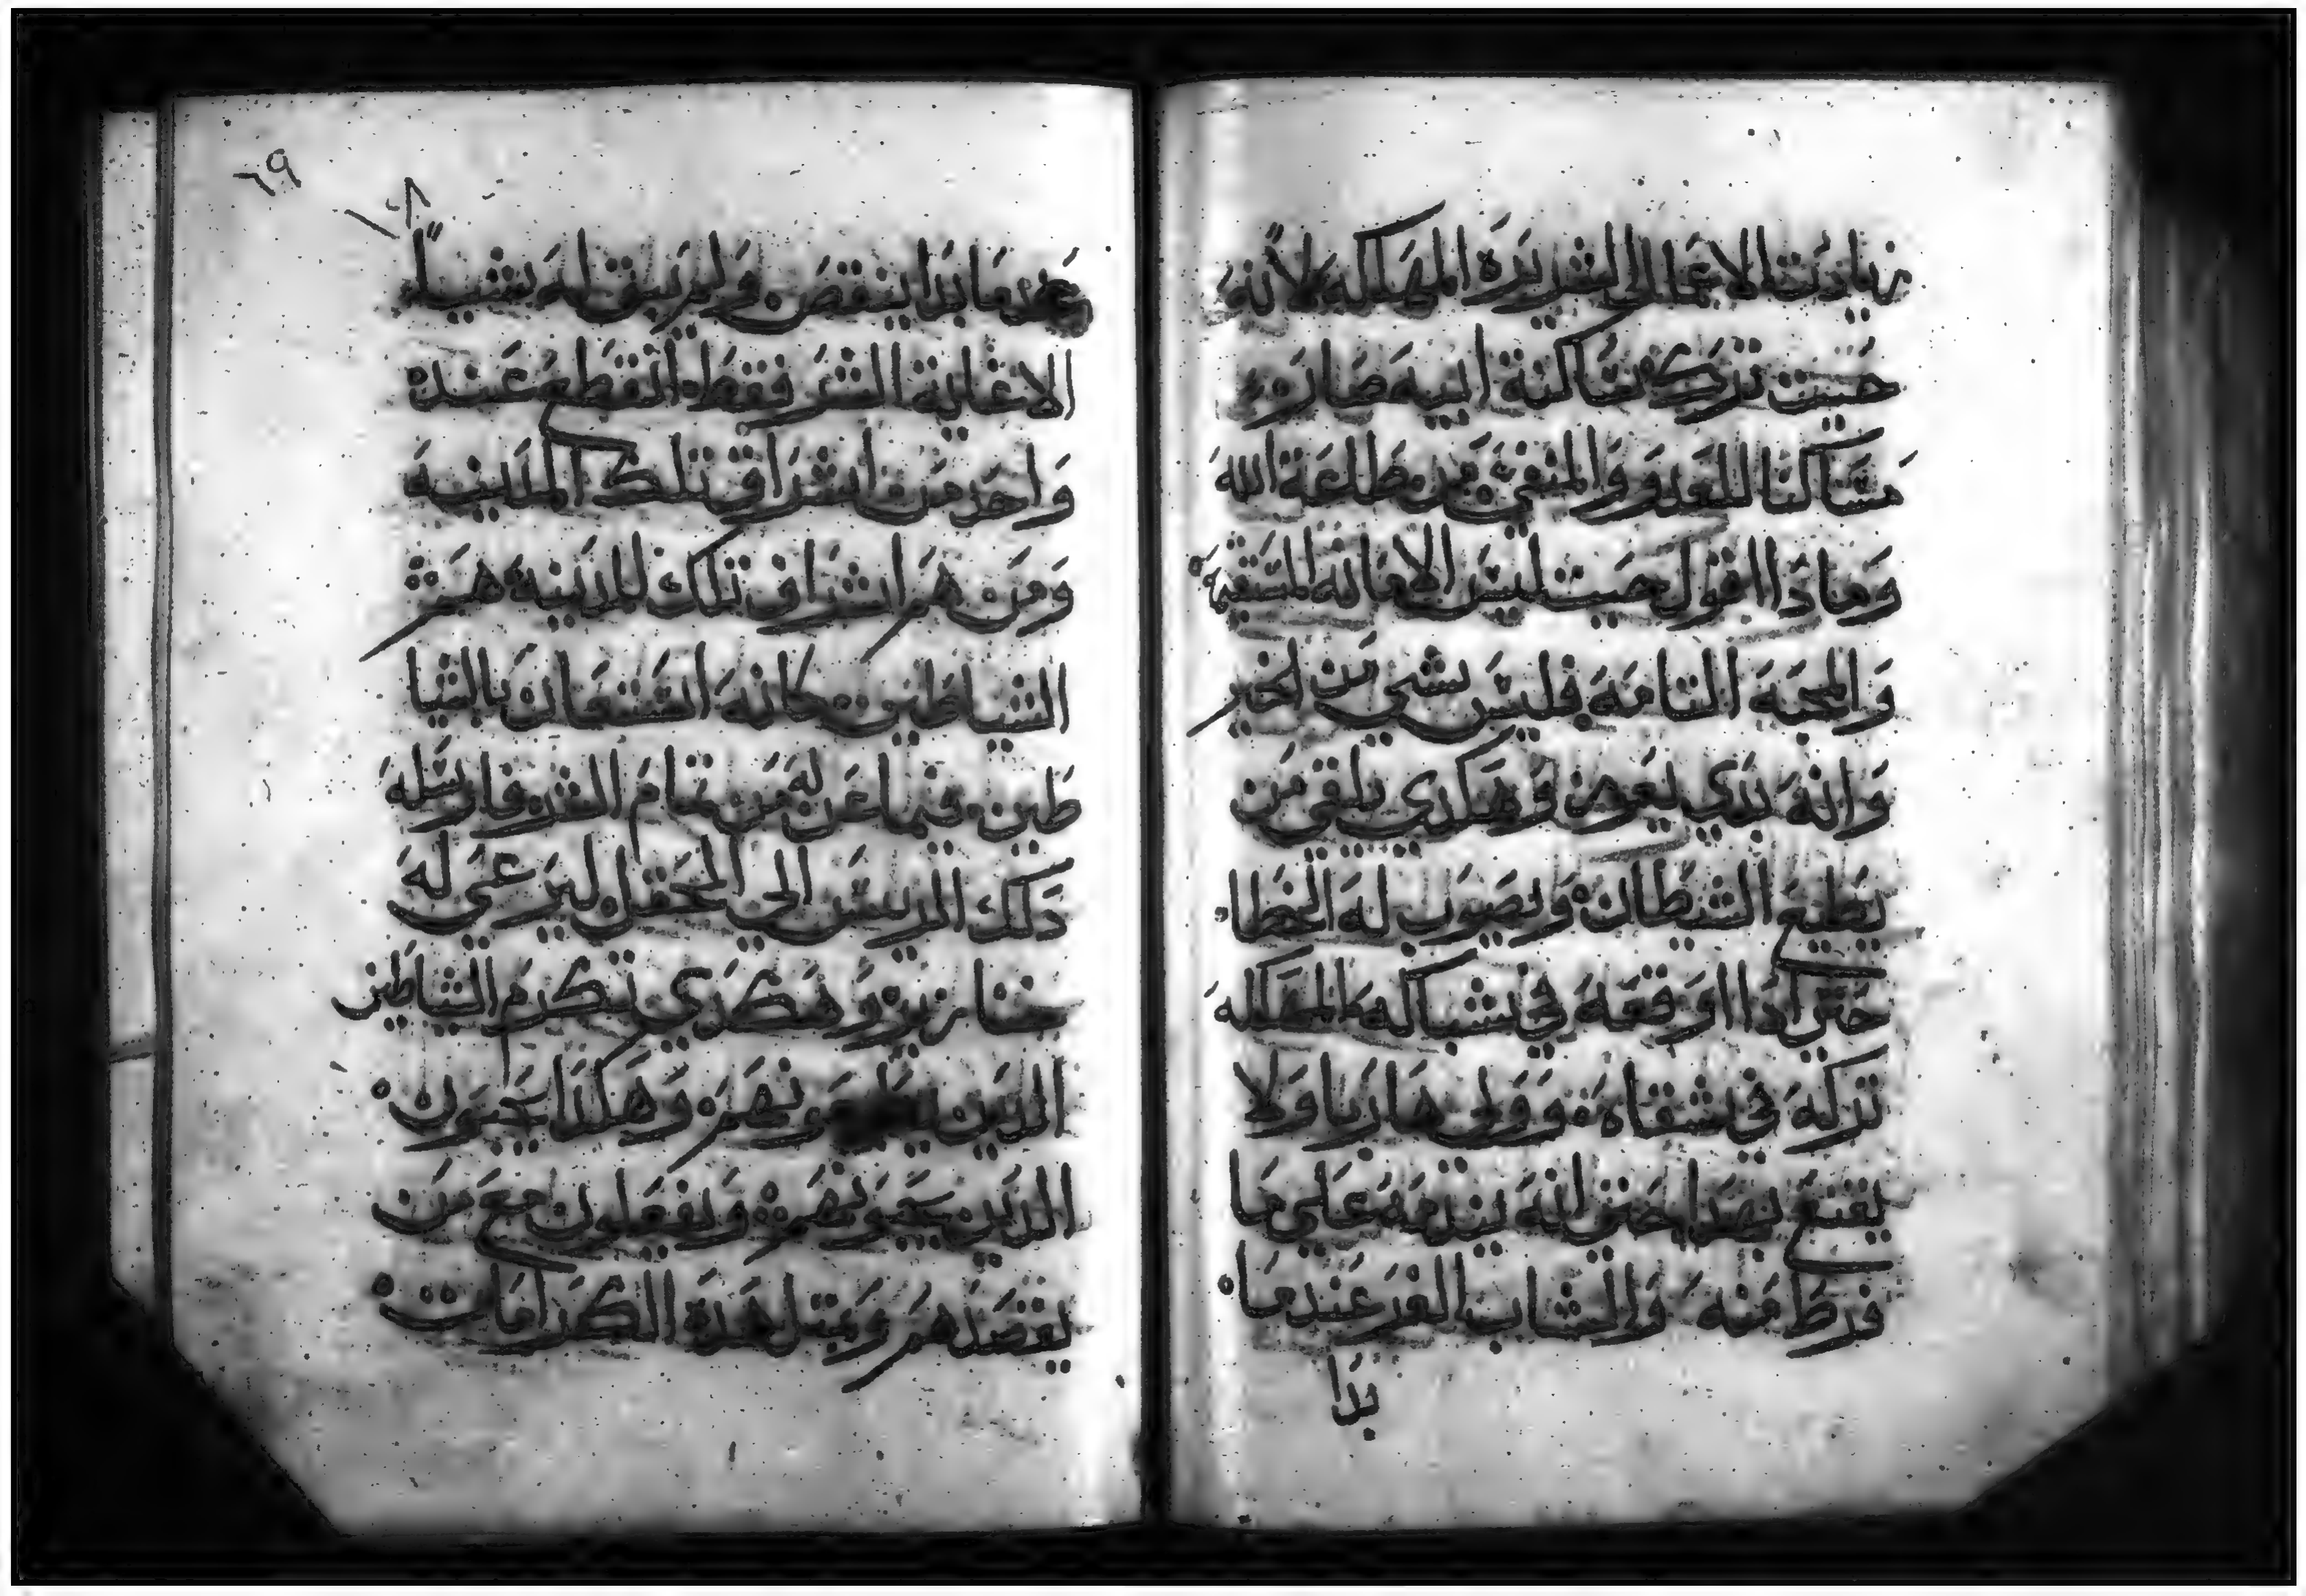 زيادت الاعمال الشريرة المهلكه لانه
حيت ترك ساكنة ابيه صار
مساكنا للعدو والمنفي من طلعة الله
وماذا اقول حيت ليس الامانه المستقيمة
والمحبه التامه فليس شي من الخير
وانه بدي يعوز وهكدي يلقي من
يطيع الشيطان ويصوب له الخطا
حتي ادا اوقعه في شباكه المهلكه
تركه في شقاه وولي هاربا ولا
يقنع بهدا حتي انه يندمه علي ما
فرط منه والشاب الغر عندما
بدا
٦٩
عندما بدا ينقص ولم يبق له شياً
الا غاية الشر فقط انقطع عند
واحد من اشراف تلك المدينه
ومن هم اشراف تلك المدينه هم
الشياطين كانه استعان بالشيا
طين فيما عن له من تمام الشر فارسله
دلك الرييس الي الحقل ليرعي له
خنازير وهكدي تكرم الشياطين
الدين يطيعونهم وهكدا يحبون
الدين يحبونهم ويفعلون مع من
يقصدهم وبمتل هده الكرامات